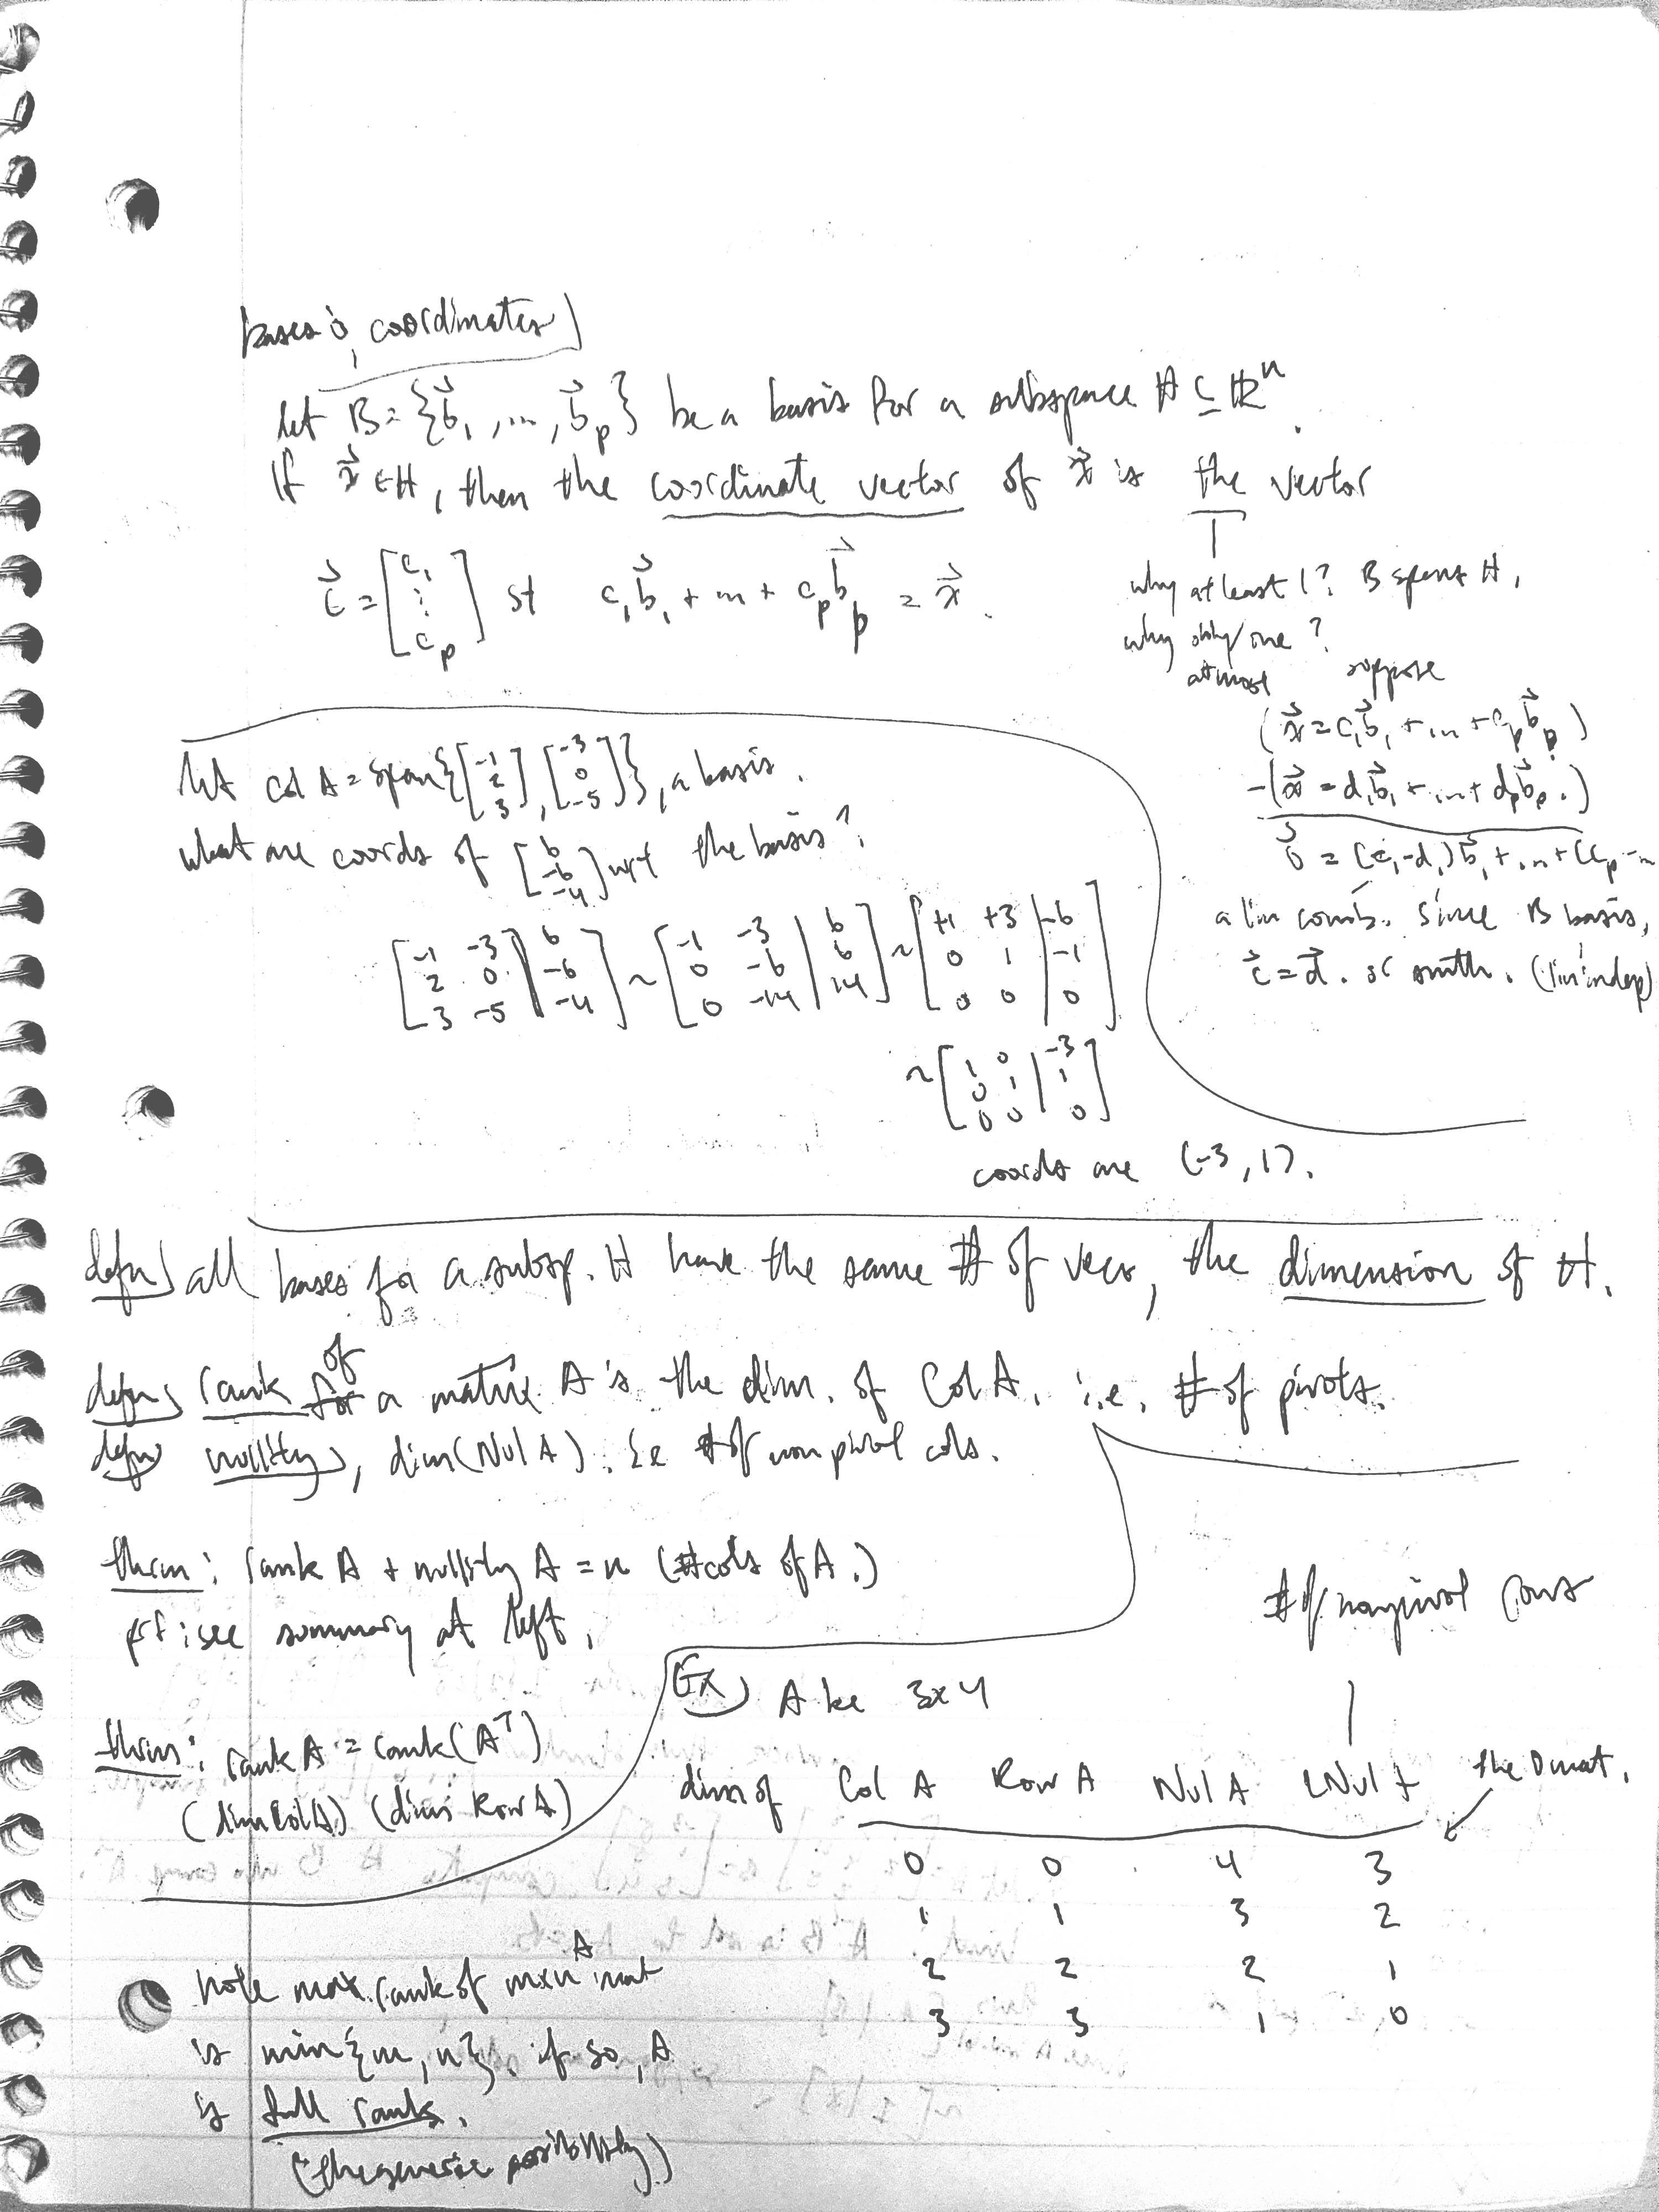 bases & coordinates
let B = {b⃗₁, ..., b⃗ₚ} be a basis for a subspace H ⊆ ℝⁿ.
If x⃗ ∈ H, then the coordinate vector of x⃗ is the vector
c⃗ = [c₁ ⋮ cₚ] st c₁b⃗₁ + ... + cₚb⃗ₚ = x⃗.
why at least 1? B spans H,
why only one?
at most suppose
(x⃗ = c₁b⃗₁ + ... + cₚb⃗ₚ)
-(x⃗ = d₁b⃗₁ + ... + dₚb⃗ₚ.)
0⃗ = (c₁-d₁)b⃗₁ + ... + (cₚ-
a lin comb. Since B basis,
c⃗ = d⃗. (lin indep)
let col A = span{[-1 2 3], [-3 0 -5]}, a basis.
what are coords of [6 -6 -4] wrt the basis?
[-1 -3 | 6; 2 0 | -6; 3 -5 | -4] ~ [-1 -3 | 6; 0 -6 | 6; 0 -14 | 14] ~ [+1 +3 | -6; 0 1 | -1; 0 0 | 0]
~ [1 0 | -3; 0 1 | 1; 0 0 | 0]
coords are (-3, 1).
defn) all bases for a subsp. H have the same # of vecs, the dimension of H.
defn) rank of for a matrix A is the dim. of Col A, i.e. # of pivots.
defn) nullity, dim(Nul A). ie # of non pivot cols.
thrm: rank A + nullity A = n (# cols of A.)
pf: see summary at left.
# of nonpivot rows
thrm: rank A = rank(Aᵀ)
(dim Col A) (dim Row A)
Ex) A be 3x4
dim of Col A Row A Nul A LNul A the 0 mat.
0 0 4 3
1 1 3 2
2 2 2 1
3 3 1 0
note max. rank of mxn mat A
is min{m, n}. if so, A
is full rank.
(the generic possibility)